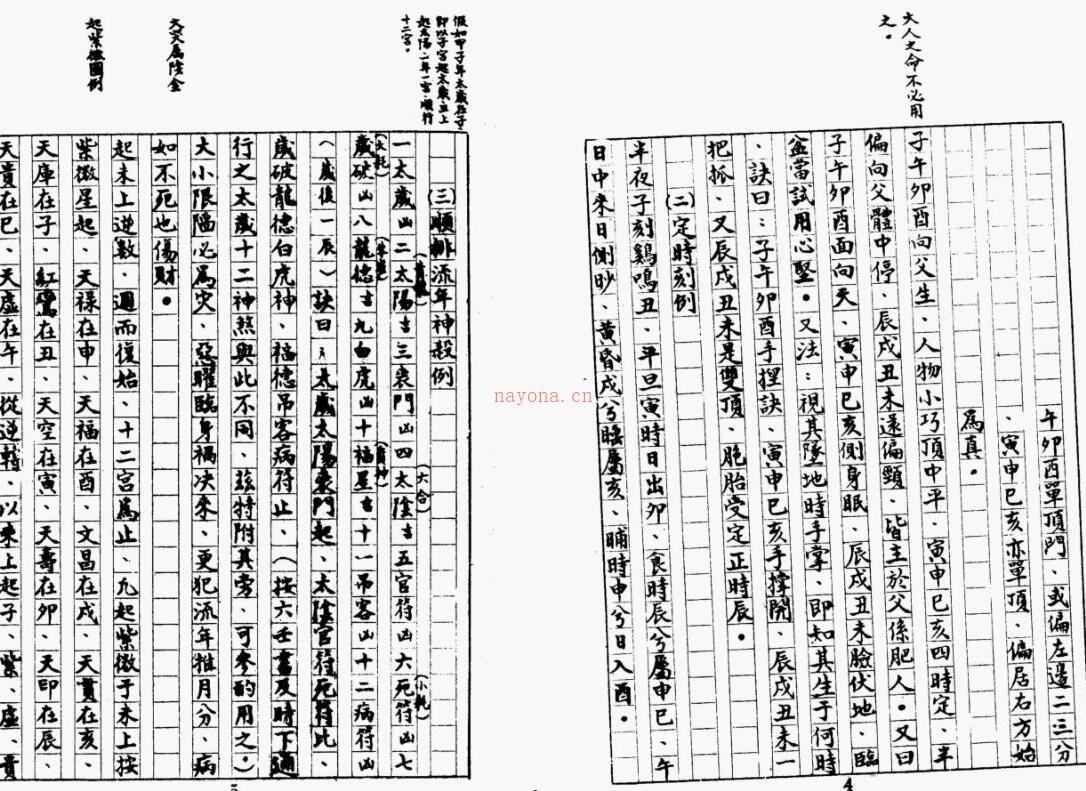 大人之命不必用
之。
午卯酉單頂門、或偏左邊二三分
、寅申巳亥亦單頂、偏居右方始
為真。
子午卯酉向父生、人物小巧頂中平、寅申巳亥四時定、半
偏向父體中停、辰戌丑未還偏頸、皆主於父係肥人。又曰
子午卯酉面向天、寅申巳亥側身眠、辰戌丑未臉伏地、臨
盆當試用心堅。又法：視其墜地時手掌、即如其生于何時
、訣曰：子午卯酉手捏訣、寅申巳亥手撑開、辰戌丑未一
把抓、又辰戌丑未是雙頂、胞胎受定正時辰。
(二)定時刻例
半夜子刻鷄鳴丑、平旦寅時日出卯、食時辰兮屬申巳、午
日中來日側、黃昏戌兮屬亥、晡時申兮日入酉。
4
假如甲子年太歲在子
即以子宮起太歲、丑上
起太陽、一年一宮、順行
十二宮。
(三)順排流年神殺例
一太歲凶二太陽吉三喪門凶四太陰吉五官符凶六死符凶七
(六合)
(小耗)
(大耗)
歲破凶八龍德吉九白虎凶十福星吉十一吊客凶十二病符凶
(歲後一辰)訣曰：太歲太陽喪門起、太陰官符死符比、
歲破龍德白虎神、福德吊客病符止、(按六壬書及時下通
行之太歲十二神煞與此不同、茲特附其旁、可參酌用之。)
大小限隔必為災、惡曜臨身禍决來、更犯流年推月分、病
如不死也傷財。
天哭屬陰金
起未上逆數、週而復始、十二宮為止、九起紫微于未上按
紫微星起、天祿在申、天福在酉、文昌在戌、天貫在亥、
起紫微圖例
天庫在子、紅鸞在丑、天空在寅、天壽在卯、天印在辰、
天貴在巳、天虛在午、從逆轉、以來上起子、紫、虛、貴
nayona.cn